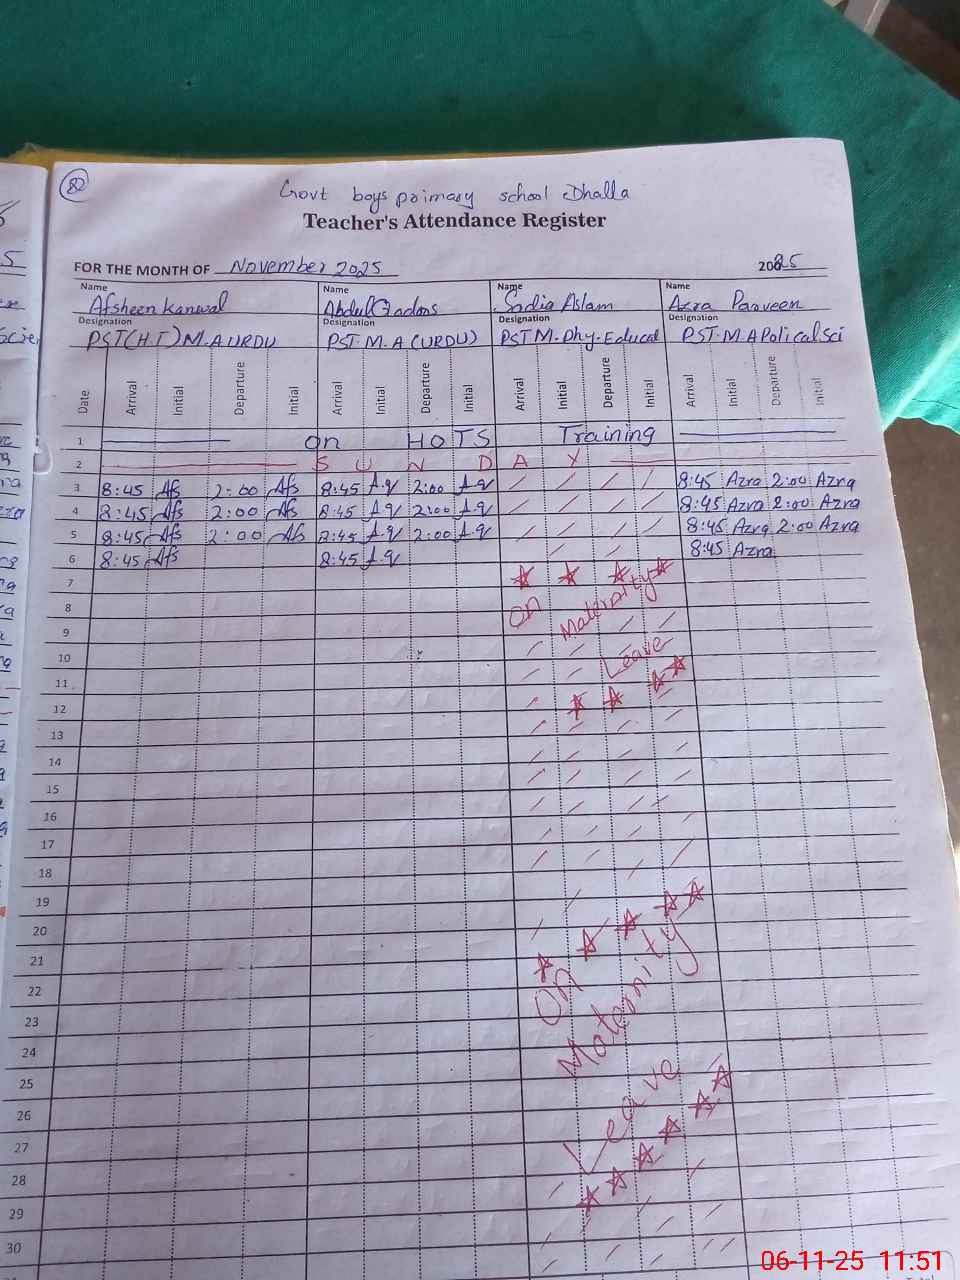 82
Govt boys primary school Dhalla
Teacher's Attendance Register
FOR THE MONTH OF November 2025 2025
Name Name Name Name
Afsheen Kanwal Abdul Qadoos Sadia Aslam Azra Parveen
Designation Designation Designation Designation
PST(H.T) M.A URDU PST M.A (URDU) PST M.Phy.Educal PST.M.A Polical Sci
Date Arrival Initial Departure Initial Arrival Initial Departure Initial Arrival Initial Departure Initial Arrival Initial Departure Initial
1 on HOTS Training
2 S U N D A Y
3 8:45 Afs 2:00 Afs 8:45 A.q 2:00 A.q 8:45 Azra 2:00 Azra
4 8:45 Afs 2:00 Afs 8:45 A.q 2:00 A.q 8:45 Azra 2:00 Azra
5 8:45 Afs 2:00 Afs 8:45 A.q 2:00 A.q 8:45 Azra 2:00 Azra
6 8:45 Afs 8:45 A.q 8:45 Azra
7
8 On Maternity
9
10 Leave
11
12
13
14
15
16
17
18
19
20
21
22 On
23 Maternity
24
25
26 Leave
27
28
29
30
06-11-25 11:51